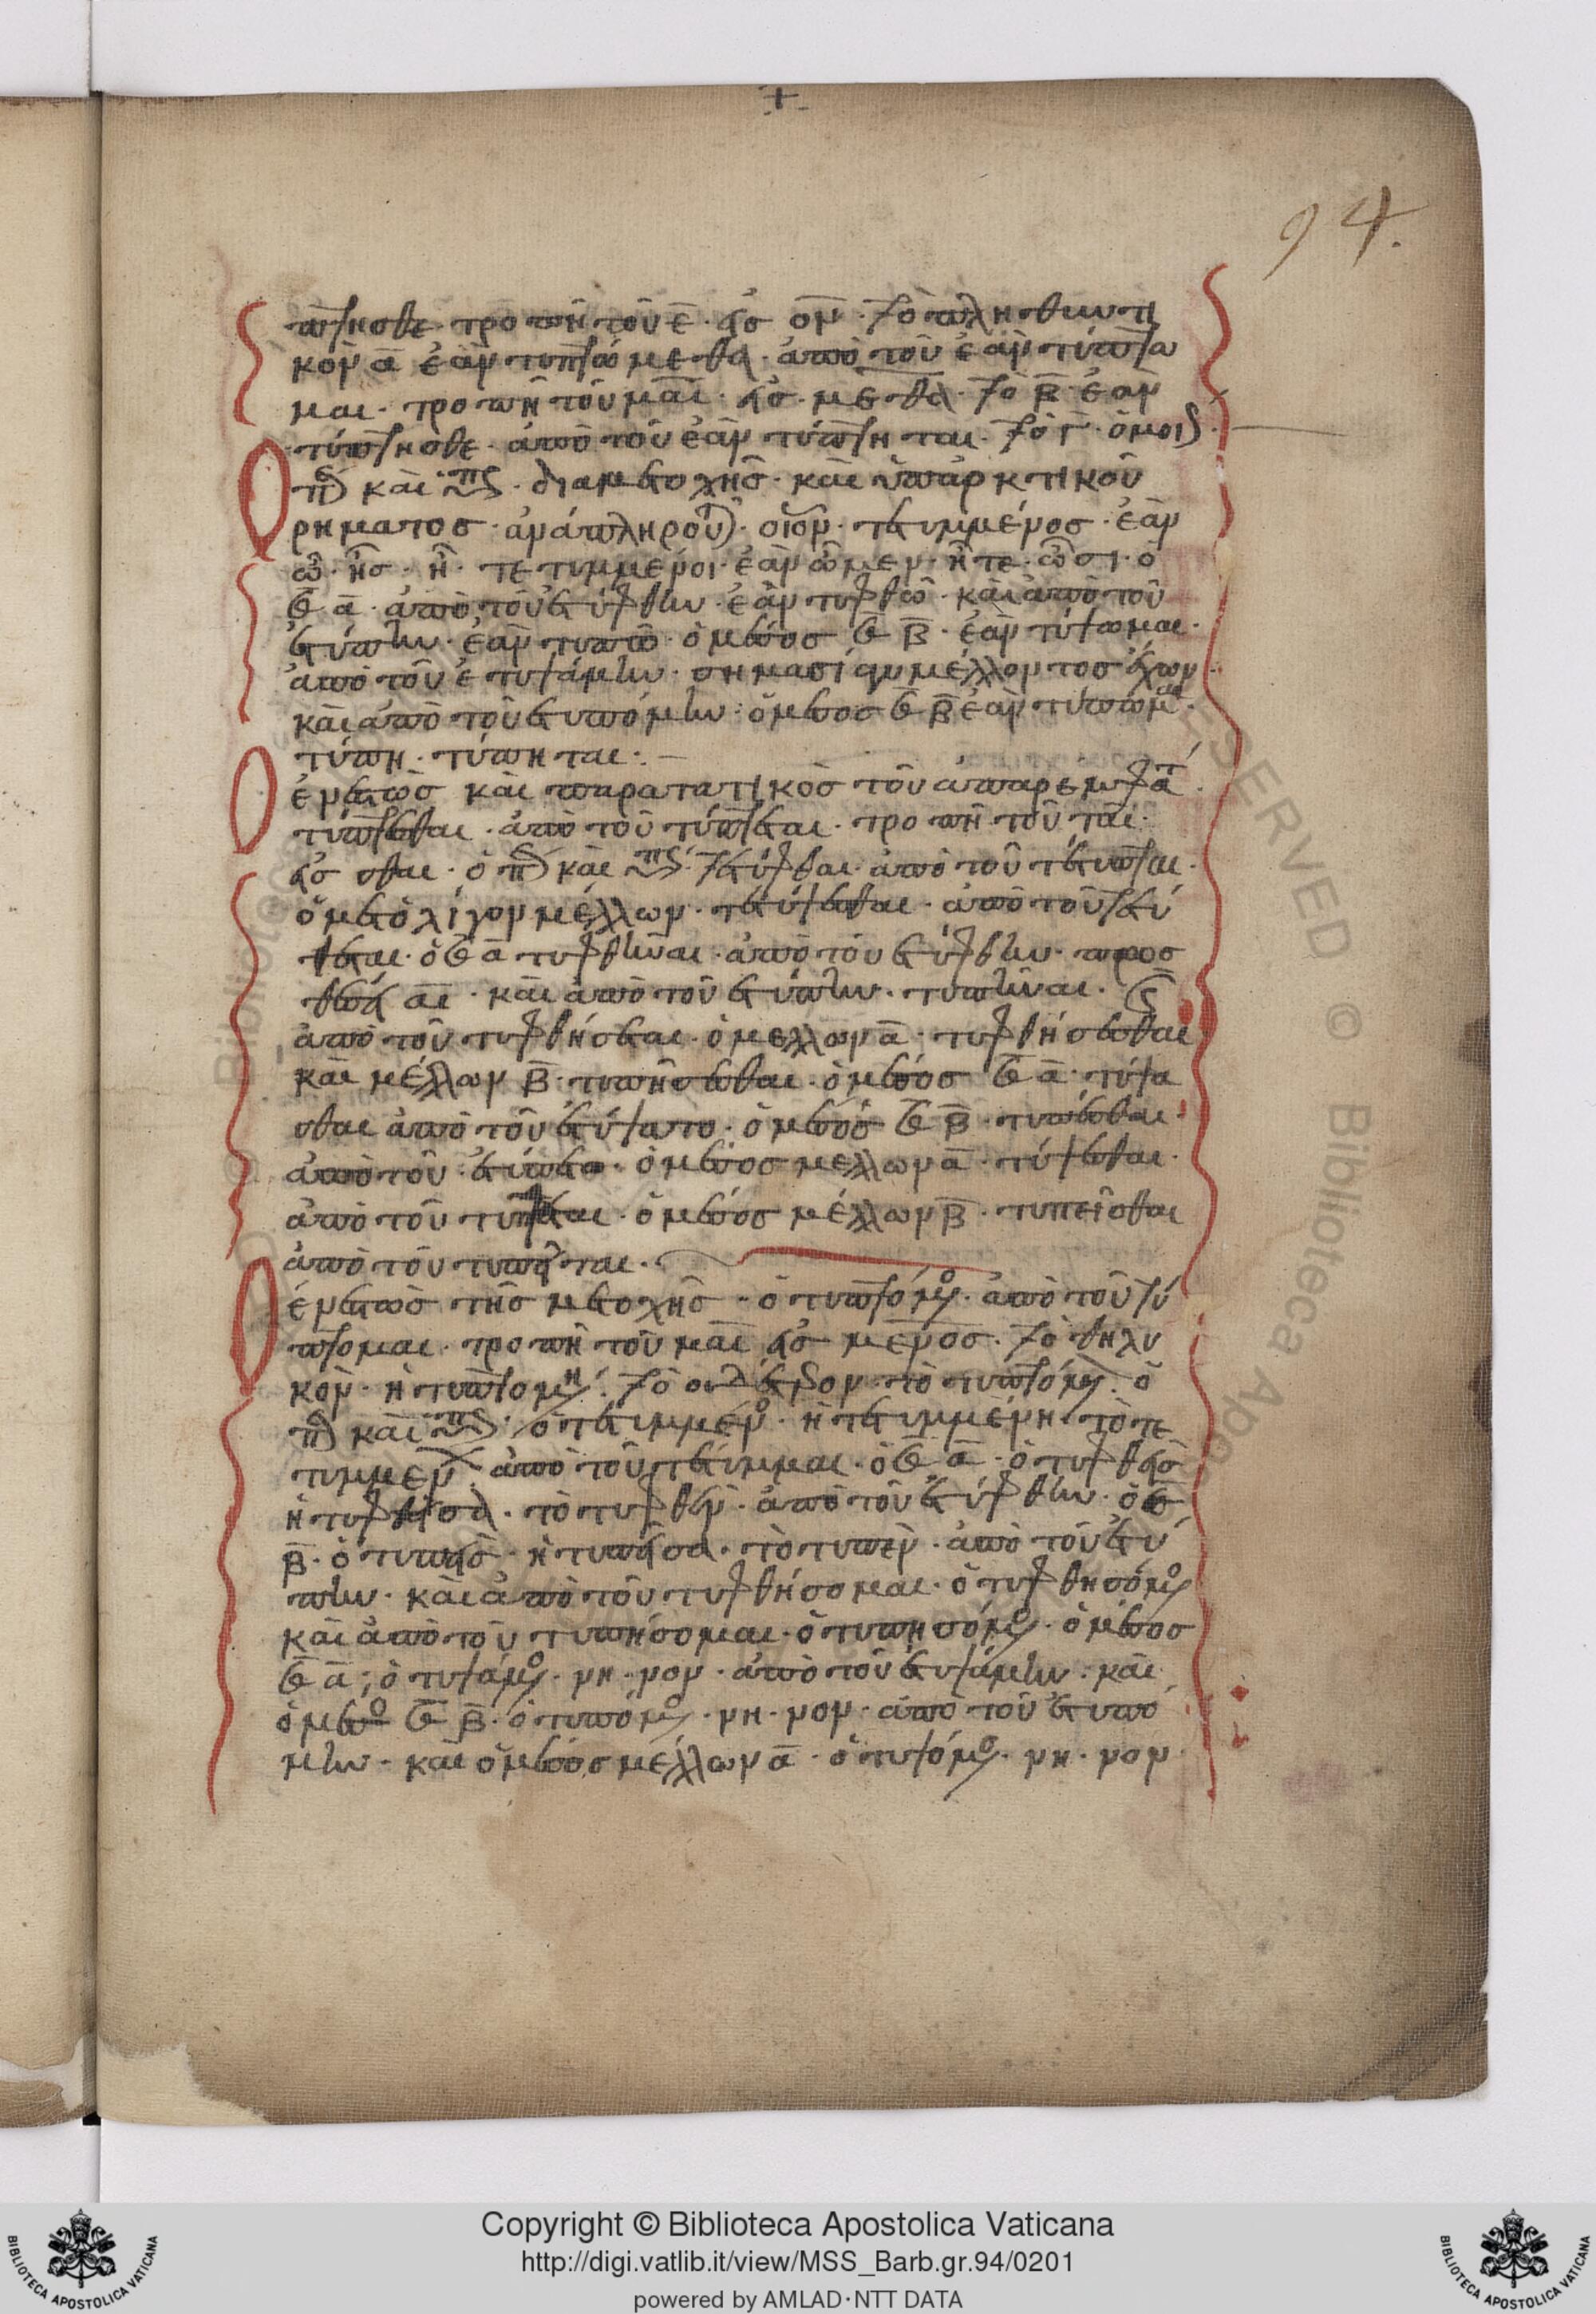 94.
πτησθε· τροπῆ τοῦ ε̄· εἰσ ον̄· τὸ πληθυντι
κὸν ᾱ ἐὰν τυπτώμεθα· ἀπὸ τοῦ ἐὰν τύπτω
μαι· τροπῆ τοῦ μαι· εἰσ· μεθα· τὸ β̄ ἐὰν
τύπτησθε· ἀπὸ τοῦ ἐὰν τύπτηται· τὸ γ̄· ὁμοι
καὶ · διαμετοχῆσ· καὶ ὑπαρκτικοῦ
ρηματοσ· ἀναπληροῦ· οἷον· τετυμμένοσ· ἐὰν
ὦ· ῆσ· ῆ· τετυμμένοι· ἐὰν ὦμεν· ἦτε· ὦσι· ὁ
ᾱ· ἀπὸ τοῦ ἐτύφθην· ἐὰν τυφθῶ· καὶ ἀπὸ τοῦ
ἐτύπην· ἐὰν τυπῶ· ὁ μέσοσ β̄· ἐὰν τύψωμαι·
ἀπὸ τοῦ ἐτυψάμην· σημασίαν μέλλοντοσ ἔχων·
καὶ ἀπὸ τοῦ ἐτυπόμην· ὁ μέσοσ β̄ ἐὰν τύπωμαι·
τύπη· τύπηται·
ἐνεστὼσ καὶ παρατατικὸσ τοῦ ἀπαρεμφάτ
τύπτεσθαι· ἀπὸ τοῦ τύπτεται· τροπῆ τοῦ ται·
εἰσ σθαι· ὁ καὶ τετύφθαι· ἀπὸ τοῦ τέτυπται·
ὁ μετολίγον μέλλων· τετύψεσθαι· ἀπὸ τοῦ τετύ
ψεται· ὁ ᾱ τυφθῆναι· ἀπὸ τοῦ ἐτύφθην· προσ
θέσει αι· καὶ ἀπὸ τοῦ ἐτύπην· τυπῆναι·
ἀπὸ τοῦ τυφθήσεται· ὁ μέλλων ᾱ· τυφθήσεσθαι
καὶ μέλλων β̄· τυπήσεσθαι· ὁ μέσοσ ᾱ· τύψα
σθαι ἀπὸ τοῦ ἐτύψατο· ὁ μέσοσ β̄· τυπέσθαι·
ἀπὸ τοῦ ἐτύπετο· ὁ μέσοσ μέλλων ᾱ· τύψεσθαι·
ἀπὸ τοῦ τύψεται· ὁ μέσοσ μέλλων β̄· τυπεῖσθαι
ἀπὸ τοῦ τυπεῖται·
ἐνεστὼσ τῆσ μετοχῆσ· ὁ τυπτόμενος· ἀπὸ τοῦ τύ
πτομαι· τροπῆ τοῦ μαι εἰσ μενοσ· τὸ θηλυ
κὸν· ἡ τυπτομένη· τὸ οὐδέτερον· τὸ τυπτόμενον· ὁ
καὶ ὁ τετυμμένος· ἡ τετυμμένη· τὸ τε
τυμμένον· ἀπὸ τοῦ τέτυμμαι· ὁ ᾱ· ὁ τυφθεὶσ
ἡ τυφθεῖσα· τὸ τυφθὲν· ἀπὸ τοῦ ἐτύφθην· ὁ
β̄· ὁ τυπεὶσ· ἡ τυπεῖσα· τὸ τυπὲν· ἀπὸ τοῦ ἐτύ
πην· καὶ ἀπὸ τοῦ τυφθήσομαι· ὁ τυφθησόμενος
καὶ ἀπὸ τοῦ τυπήσομαι· ὁ τυπησόμενος· ὁ μέσοσ
ᾱ· ὁ τυψάμενος· νη· νον· ἀπὸ τοῦ ἐτυψάμην· καὶ
ὁ μέσος β̄· ὁ τυπόμενος· νη· νον· ἀπὸ τοῦ ἐτυπό
μην· καὶ ὁ μέσοσ μέλλων ᾱ· ὁ τυψόμενος· νη· νον
Copyright © Biblioteca Apostolica Vaticana
http://digi.vatlib.it/view/MSS_Barb.gr.94/0201
powered by AMLAD·NTT DATA